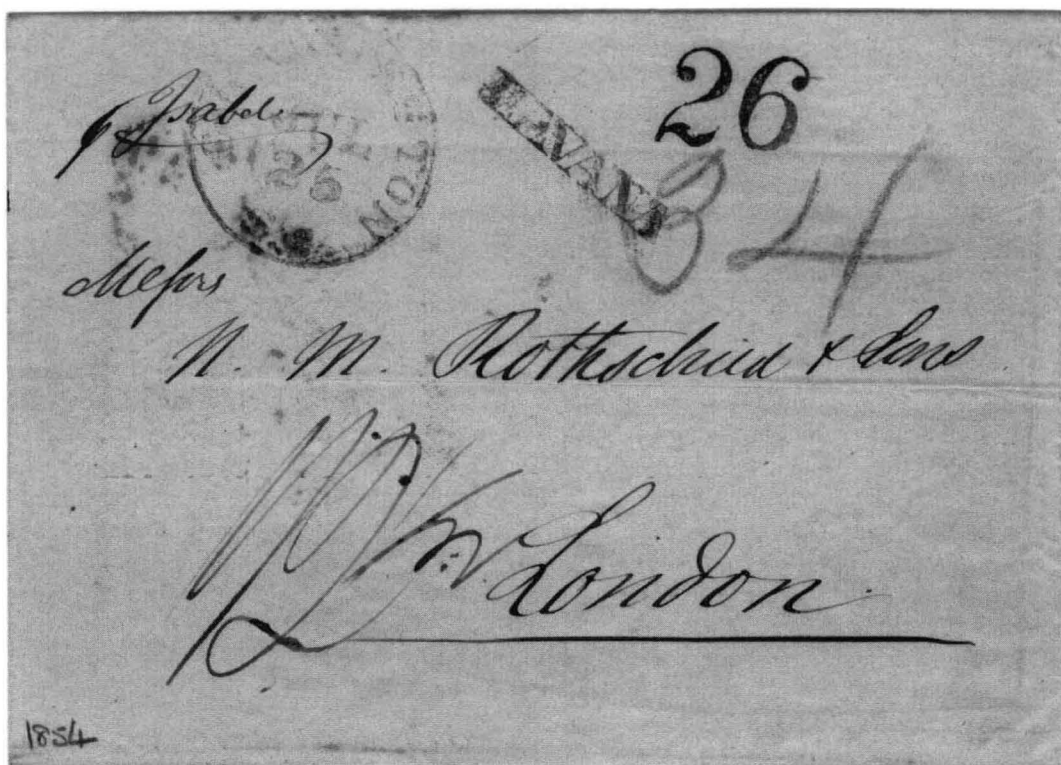 26
p Isabel
HAVANA
26
34
Messrs
N. M. Rothschild & Sons
London
1854